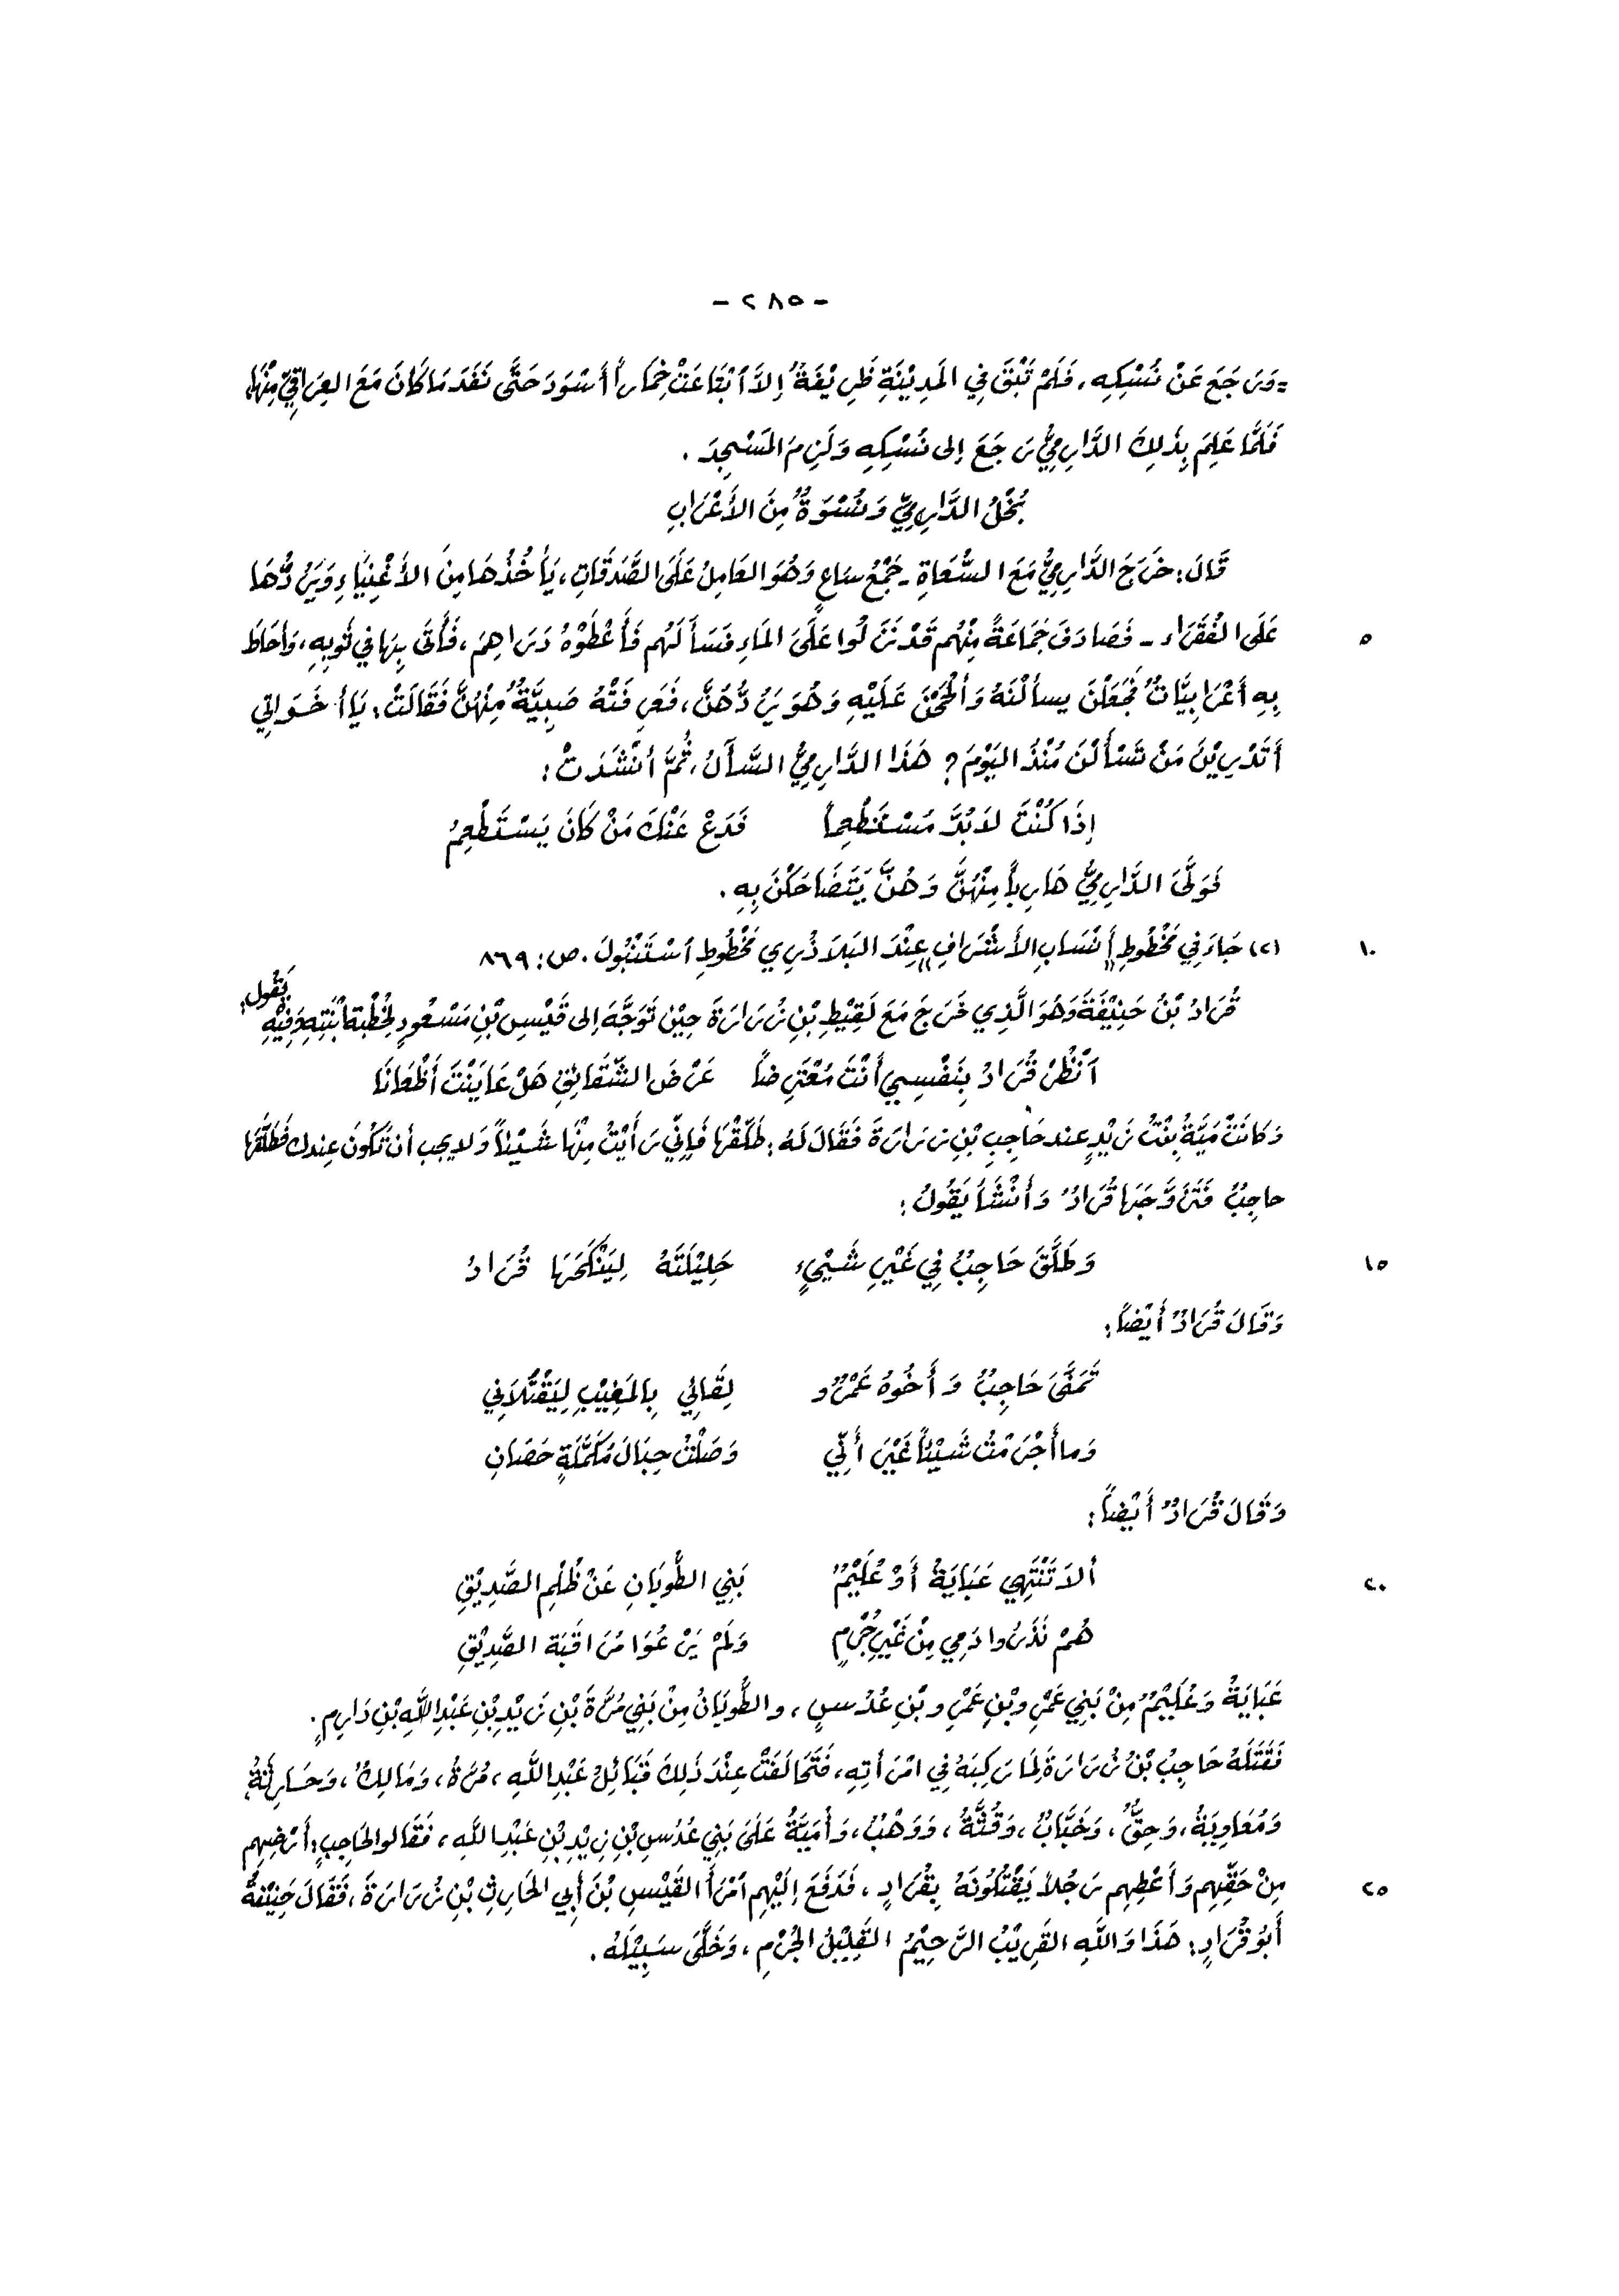 - ٢٨٥ -
= وَرَجَعَ عَنْ نُسْكِهِ، فَلَمْ تَبْقَ فِي المَدِيْنَةِ ظَرِيْفَةٌ إلاَّ ابْتَاعَتْ خِمَاراً أَسْوَدَ حَتَّى نَفَدَ مَا كَانَ مَعَ العِرَاقِيِّ مِنْهَا،
فَلَمَّا عَلِمَ بِذَلِكَ الدَّارِمِيُّ رَجَعَ إلى نُسْكِهِ وَلَزِمَ المَسْجِدَ .
بُخْلُ الدَّارِمِيِّ وَنُسْوَةٌ مِنَ الأَعْرَابِ
قَالَ: خَرَجَ الدَّارِمِيُّ مَعَ السُّعَاةِ - جَمْعُ سَاعٍ وَهُوَ العَامِلُ عَلَى الصَّدَقَاتِ، يَأْخُذُهَا مِنَ الأَغْنِيَاءِ وَيَرُدُّهَا
٥ عَلَى الفُقَرَاءِ - فَصَادَفَ جَمَاعَةً مِنْهُم قَدْ نَزَلُوا عَلَى المَاءِ فَسَأَلَهُم فَأَعْطَوْهُ دَرَاهِمَ، فَأَتَى بِهَا فِي ثَوبِهِ، وَأَحَاطَ
بِهِ أَعْرَابِيَّاتٌ فَجَعَلْنَ يسأَلْنَهُ وَأَلْحَحْنَ عَلَيْهِ وَهُوَ يَرُدُّهُنَّ، فَعَرِفَتْهُ صَبِيَّةٌ مِنْهُنَّ فَقَالَتْ: يَا أَخَوَاتِي
أَتَدْرِيْنَ مَنْ تَسْأَلْنَ مُنْذُ اليَوْمَ؟ هَذَا الدَّارِمِيُّ السَّآلُ، ثُمَّ أَنْشَدَتْ:
إِذَا كُنْتَ لاَبُدَّ مُسْتَطْعِماً فَدَعْ عَنْكَ مَنْ كَانَ يَسْتَطْعِمُ
فَوَلَّى الدَّارِمِيُّ هَارِباً مِنْهُنَّ وَهُنَّ يَتَضَاحَكْنَ بِهِ .
١٠ (٢) جَاءَ فِي مَخْطُوطِ "أَنْسَابِ الأَشْرَافِ" عِنْدَ البَلاَذُرِي مَخْطُوطِ اسْتَنْبُولَ . ص: ٨٦٩
قُرَادُ بْنُ حَنِيْفَةَ وَهُوَ الَّذِي خَرَجَ مَعَ لَقِيْطِ بْنِ زُرَارَةَ حِيْنَ تَوَجَّهَ إلى قَيْسِ بْنِ مَسْعُودٍ لِخُطْبَةِ ابْنَتِهِ وَفِيْهِ يَقُولُ:
اَنْظُرْ قُرَادُ بِنَفْسِي أَنْتَ مُعْتَرِضاً عَرْضَ الشَّقَائِقِ هَلْ عَايَنْتَ أَظْعَانَا
وَكَانَتْ مَيَّةُ بِنْتُ زَيْدٍ عند حَاجِبِ بْنِ زرَارَةَ فَقَالَ لَهُ: طَلِّقْهَا فَإِنِّي رَأَيْتُ مِنْهَا شَيْئاً وَلا يجب أن تَكُونَ عِندك فَطَلَّقَهَا
حاجِبٌ فَتَزَوَّجَهَا قُرَادٌ وَأَنْشَأَ يَقُولُ:
١٥ وَطَلَّقَ حَاجِبٌ فِي غَيْرِ شَيْيءٍ حَلِيْلَتَهُ لِيَنْكَحَهَا قُرَادُ
وَقَالَ قُرَادٌ أَيْضاً:
تَمَنَّى حَاجِبٌ وَأَخُوهُ عَمْرٌو لِقَائِي بِالمَغِيْبِ لِيَقْتُلاَنِي
وَما أَجْرَمْتُ شَيْئاً غَيْرَ أَنِّي وَصَلْتُ حِبَالَ مُكَمَّلَةٍ حَصَانِ
وَقَالَ قُرَادٌ أَيْضاً:
٢٠ أَلاَ تَنْتَهِي عَبَايَةُ أَوْ عُلَيْمٌ بَنِي الطُّوبَانِ عَنْ ظُلْمِ الصَّدِيْقِ
هُمْ نَذَرُوا دَمِي مِنْ غَيْرِ جُرْمٍ وَلَمْ يَرْعَوَا مُرَاقَبَةَ الصَّدِيْقِ
عَبَايَةُ وَعُلَيْمٌ مِنْ بَنِي عَمْرِو بْنِ عَمْرِو بْنِ عُدُسٍ، والطُّوبَانُ مِنْ بَنِي مُرَّةَ بْنِ زَيْدِ بْنِ عَبْدِ اللهِ بْنِ دَارِمٍ .
فَقَتَلَهُ حَاجِبُ بْنُ زُرَارَةَ لِمَا رَكِبَهُ فِي امْرَأَتِهِ، فَتَحَالَفَتْ عِنْدَ ذَلِكَ قَبَائِلُ عَبْدِ اللهِ، مُرَّةُ، وَمَالِكٌ، وَحَارِثَةُ،
وَمُعَاوِيَةُ، وَحِقٌّ، وَخَبَّابٌ، وَقُنَّةُ، وَوَهْبٌ، وَأُمَيَّةُ عَلَى بَنِي عُدُسِ بْنِ زيْدِ بْنِ عَبْدِ اللهِ، فَقَالوا لحَاجِبٍ: أَرْضِهِم
٢٥ مِنْ حَقِّهِم وَأَعْطِهِم رَجُلاً يَقْتُلُونَهُ بِقُرَادٍ، فَدَفَعَ إلَيْهِم امْرَأَ القَيْسِ بْنَ أَبِي الحَارِثِ بْنِ زُرَارَةَ، فَقَالَ حَنِيْفَةُ
أَبُو قُرَادٍ: هَذَا وَاللهِ القَرِيْبُ الرَّحِيْمُ القَلِيْلُ الجُرْمِ، وَخَلَّى سَبِيْلَهُ .